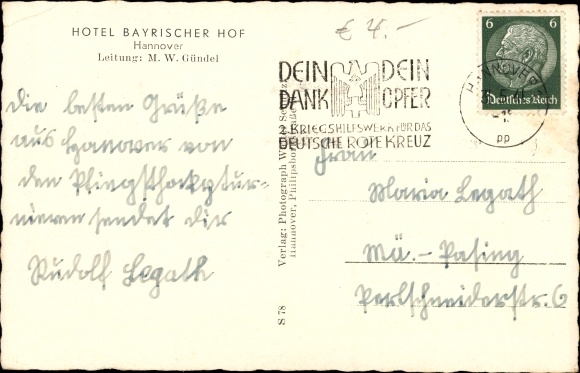 HOTEL BAYRISCHER HOF
Hannover
Leitung: M. W. Gündel
€ 4.-
6 6
Deutsches Reich
HANNOVER
pp
DEIN DEIN
DANK OPFER
2. KRIEGSHILFSWERK FÜR DAS
DEUTSCHE ROTE KREUZ
Die besten Grüße
aus Hanover von
den Pfingsthockytur-
nieren sendet dir
Rudolf Legath
Verlag: Photograph
Hannover, Philipsbor
S 78
Frau
Maria Legath
Mü.- Pasing
Perlschneiderstr. 6